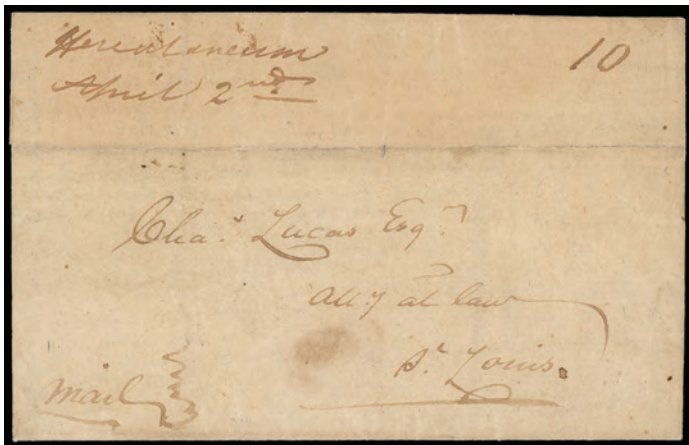 Herculaneum
April 2nd
10
Chas. Lucas Esqr.
Atty at law
St. Louis.
mail